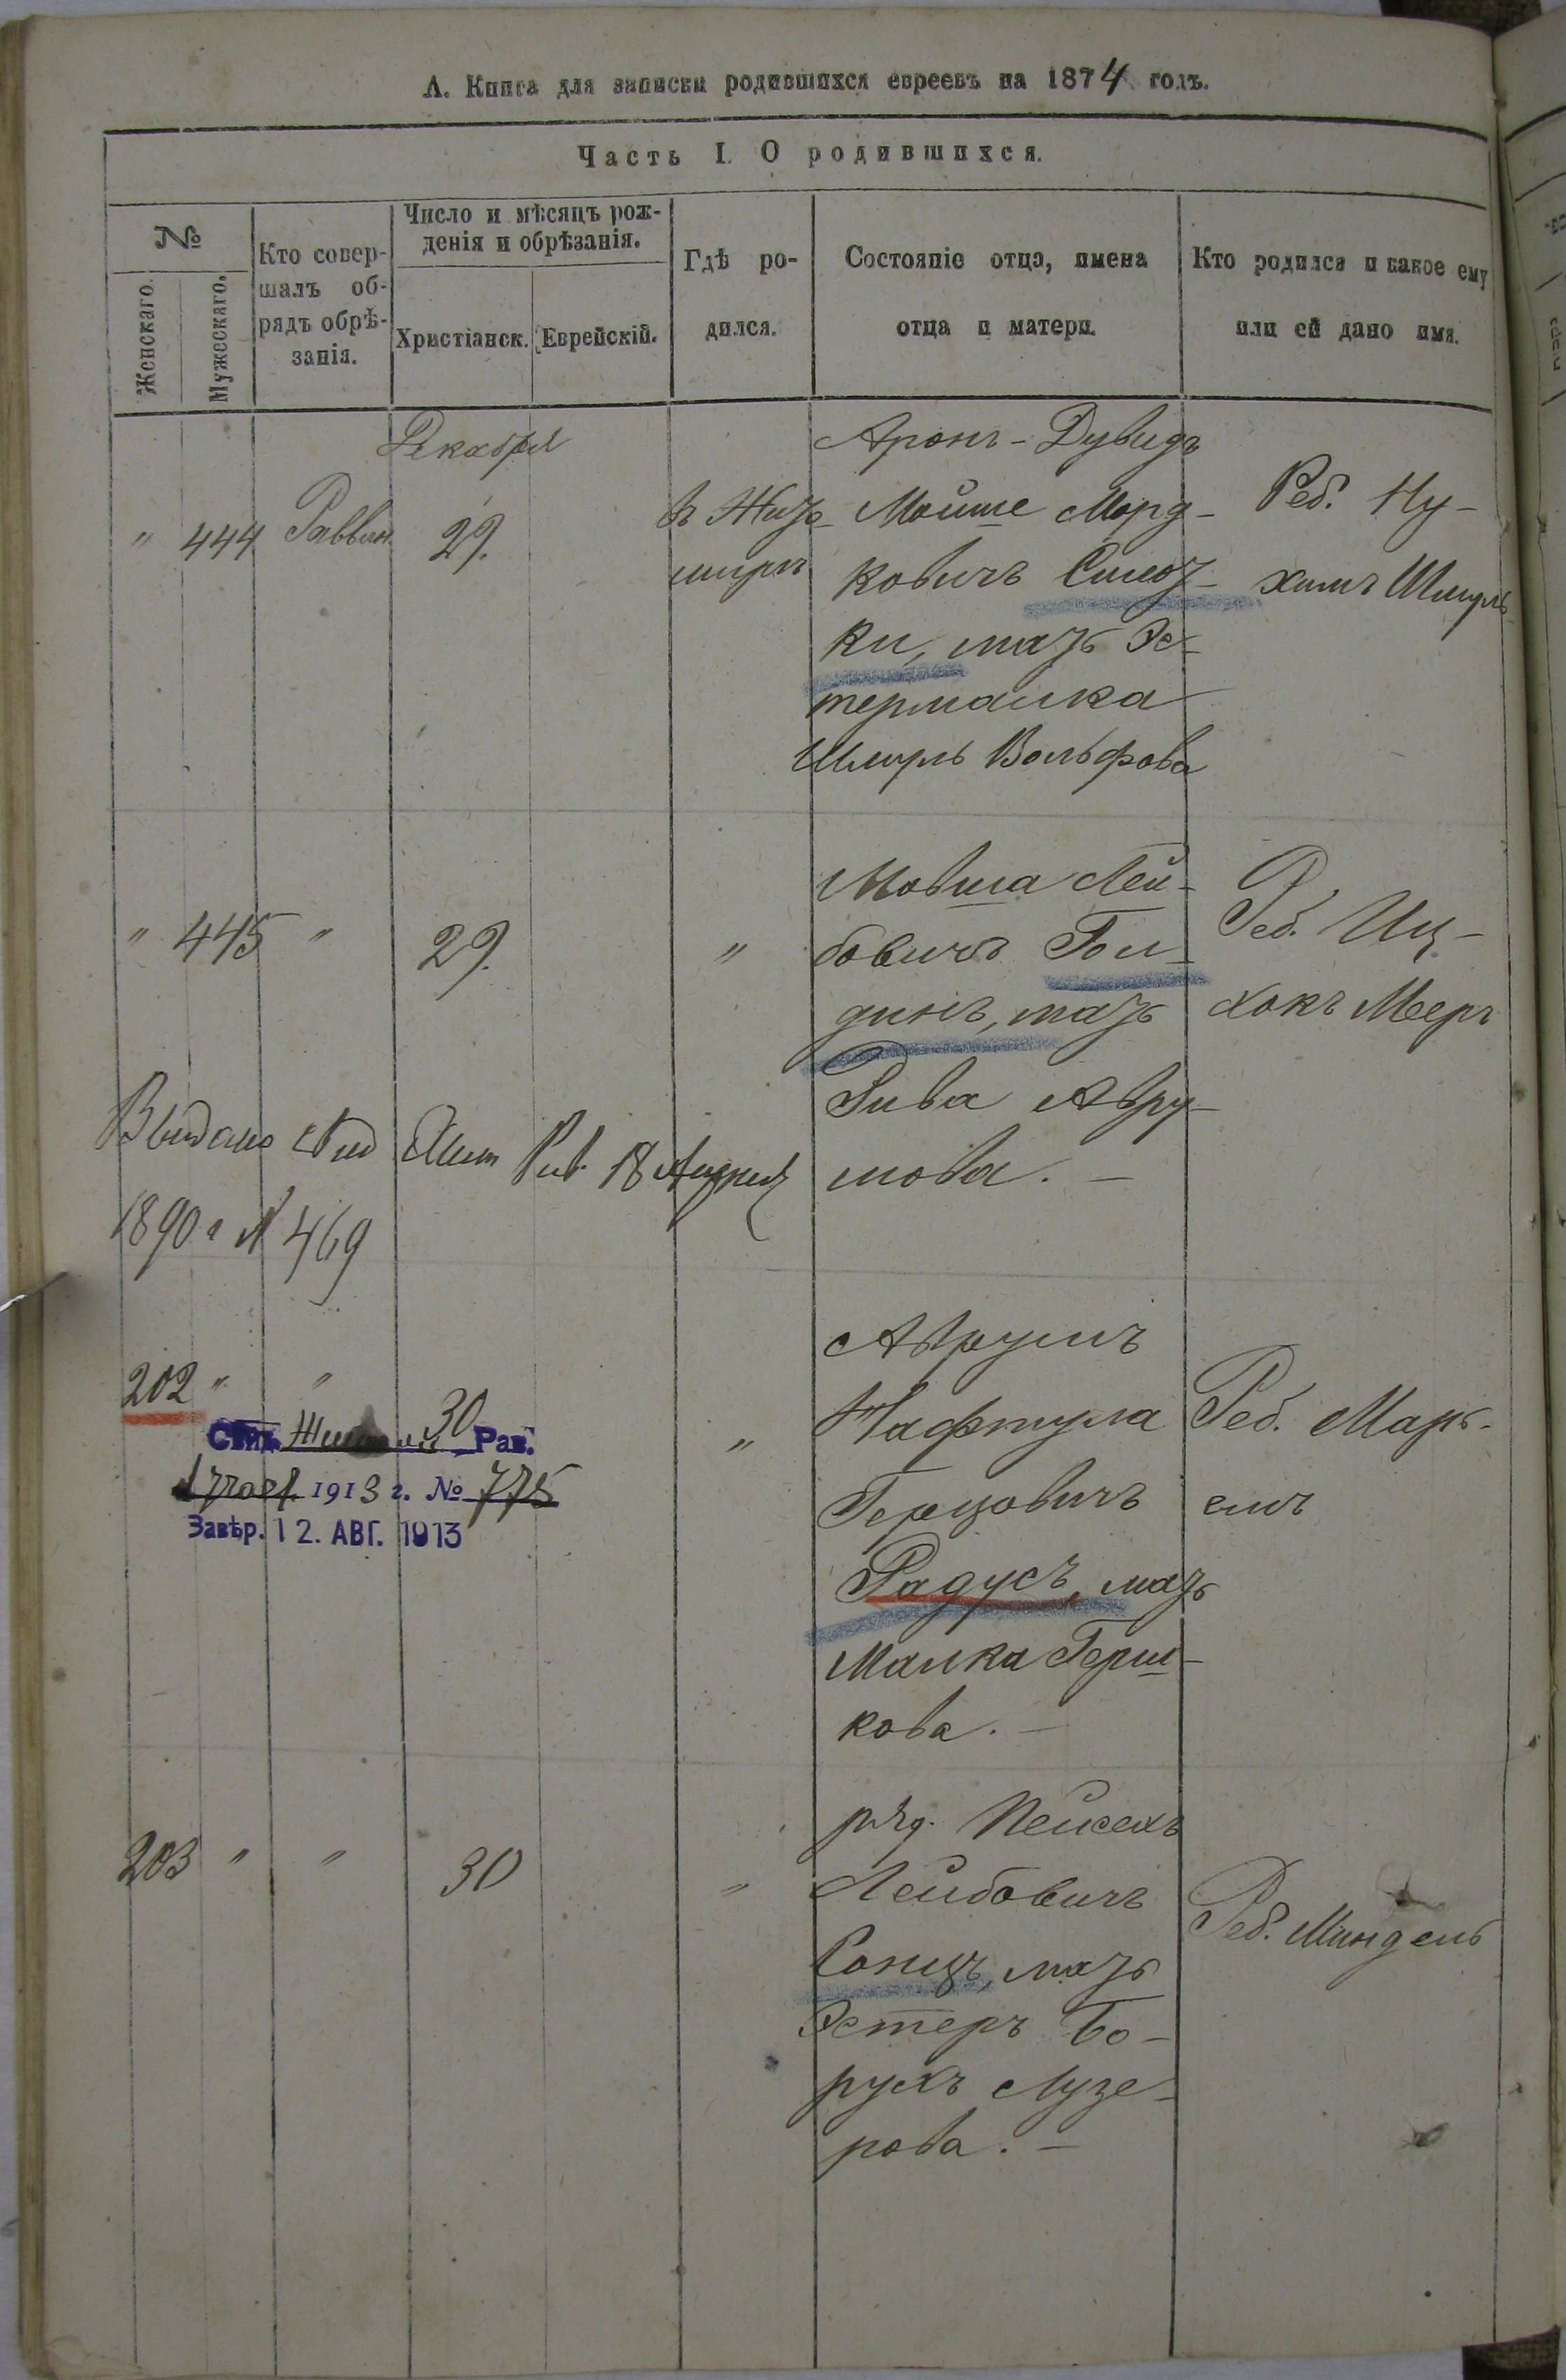 А. Книга для записки родившихся евреевъ на 1874 годъ.
Часть I. О родившихся.
№
Женскаго.
Мужескаго.
Кто совер-
шалъ об-
рядъ обрѣ-
занія.
Число и мѣсяцъ рож-
денія и обрѣзанія.
Христіанск.
Еврейскій.
Гдѣ ро-
дился.
Состояніе отца, имена
отца и матери.
Кто родился и какое ему
или ей дано имя.
Декабря
" 444 Раввин 29.
в Жито
мирѣ
Аронъ-Дувидъ
Мойше Морд-
ковичъ
ки, мать Эс-
термалка
Шмуль Вольфова
Реб. Ну-
химъ Шмуль
" 445 " 29. "
Мовша Лей-
бовичъ Гол-
динъ, мать
Рива Авру-
мова. -
Реб. Иц-
хокъ Меер
Выдано 18
1890 г № 469
202 " " 30 "
Рав.
1913 г. № 775
Завѣр. 12. АВГ. 1913
Аврумъ
Нафтула
Герцовичъ
Радусъ, мать
Малка Герш-
кова. -
Реб. Марь-
емъ
203 " " 30 "
ряд. Пейсехъ
Лейбовичъ
мать
Эстеръ Бо-
рухъ Лузе-
рова. -
Реб. Миндель